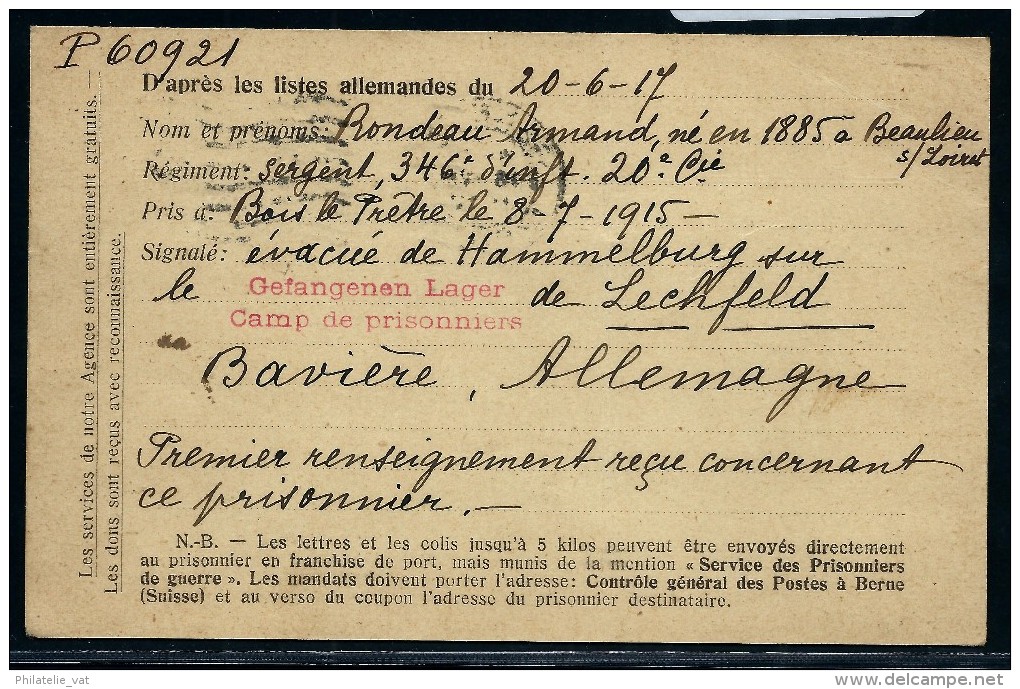 P 60921
D'après les listes allemandes du 20-6-17
Nom et prénoms: Rondeau Armand, né en 1885 à Beaulieu
s/Loiret
Régiment: sergent, 346e d'inft. 20e Cie
Pris à Bois le Prêtre le 8-7-1915-
Signalé: évacué de Hammelburg sur
le Gefangenen Lager de Lechfeld
Camp de prisonniers
Bavière, Allemagne
Premier renseignement reçu concernant
ce prisonnier.-
N.-B. — Les lettres et les colis jusqu'à 5 kilos peuvent être envoyés directement
au prisonnier en franchise de port, mais munis de la mention « Service des Prisonniers
de guerre ». Les mandats doivent porter l'adresse: Contrôle général des Postes à Berne
(Suisse) et au verso du coupon l'adresse du prisonnier destinataire.
Les services de notre Agence sont entièrement gratuits. —
Les dons sont reçus avec reconnaissance.
Philatelie_vat
delcampe.net